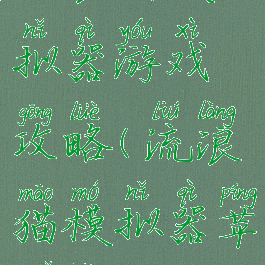 nǐ qì yóu xì
拟器游戏
gōng lüè liú làng
攻略(流浪
māo mó nǐ qì píng
猫模拟器苹